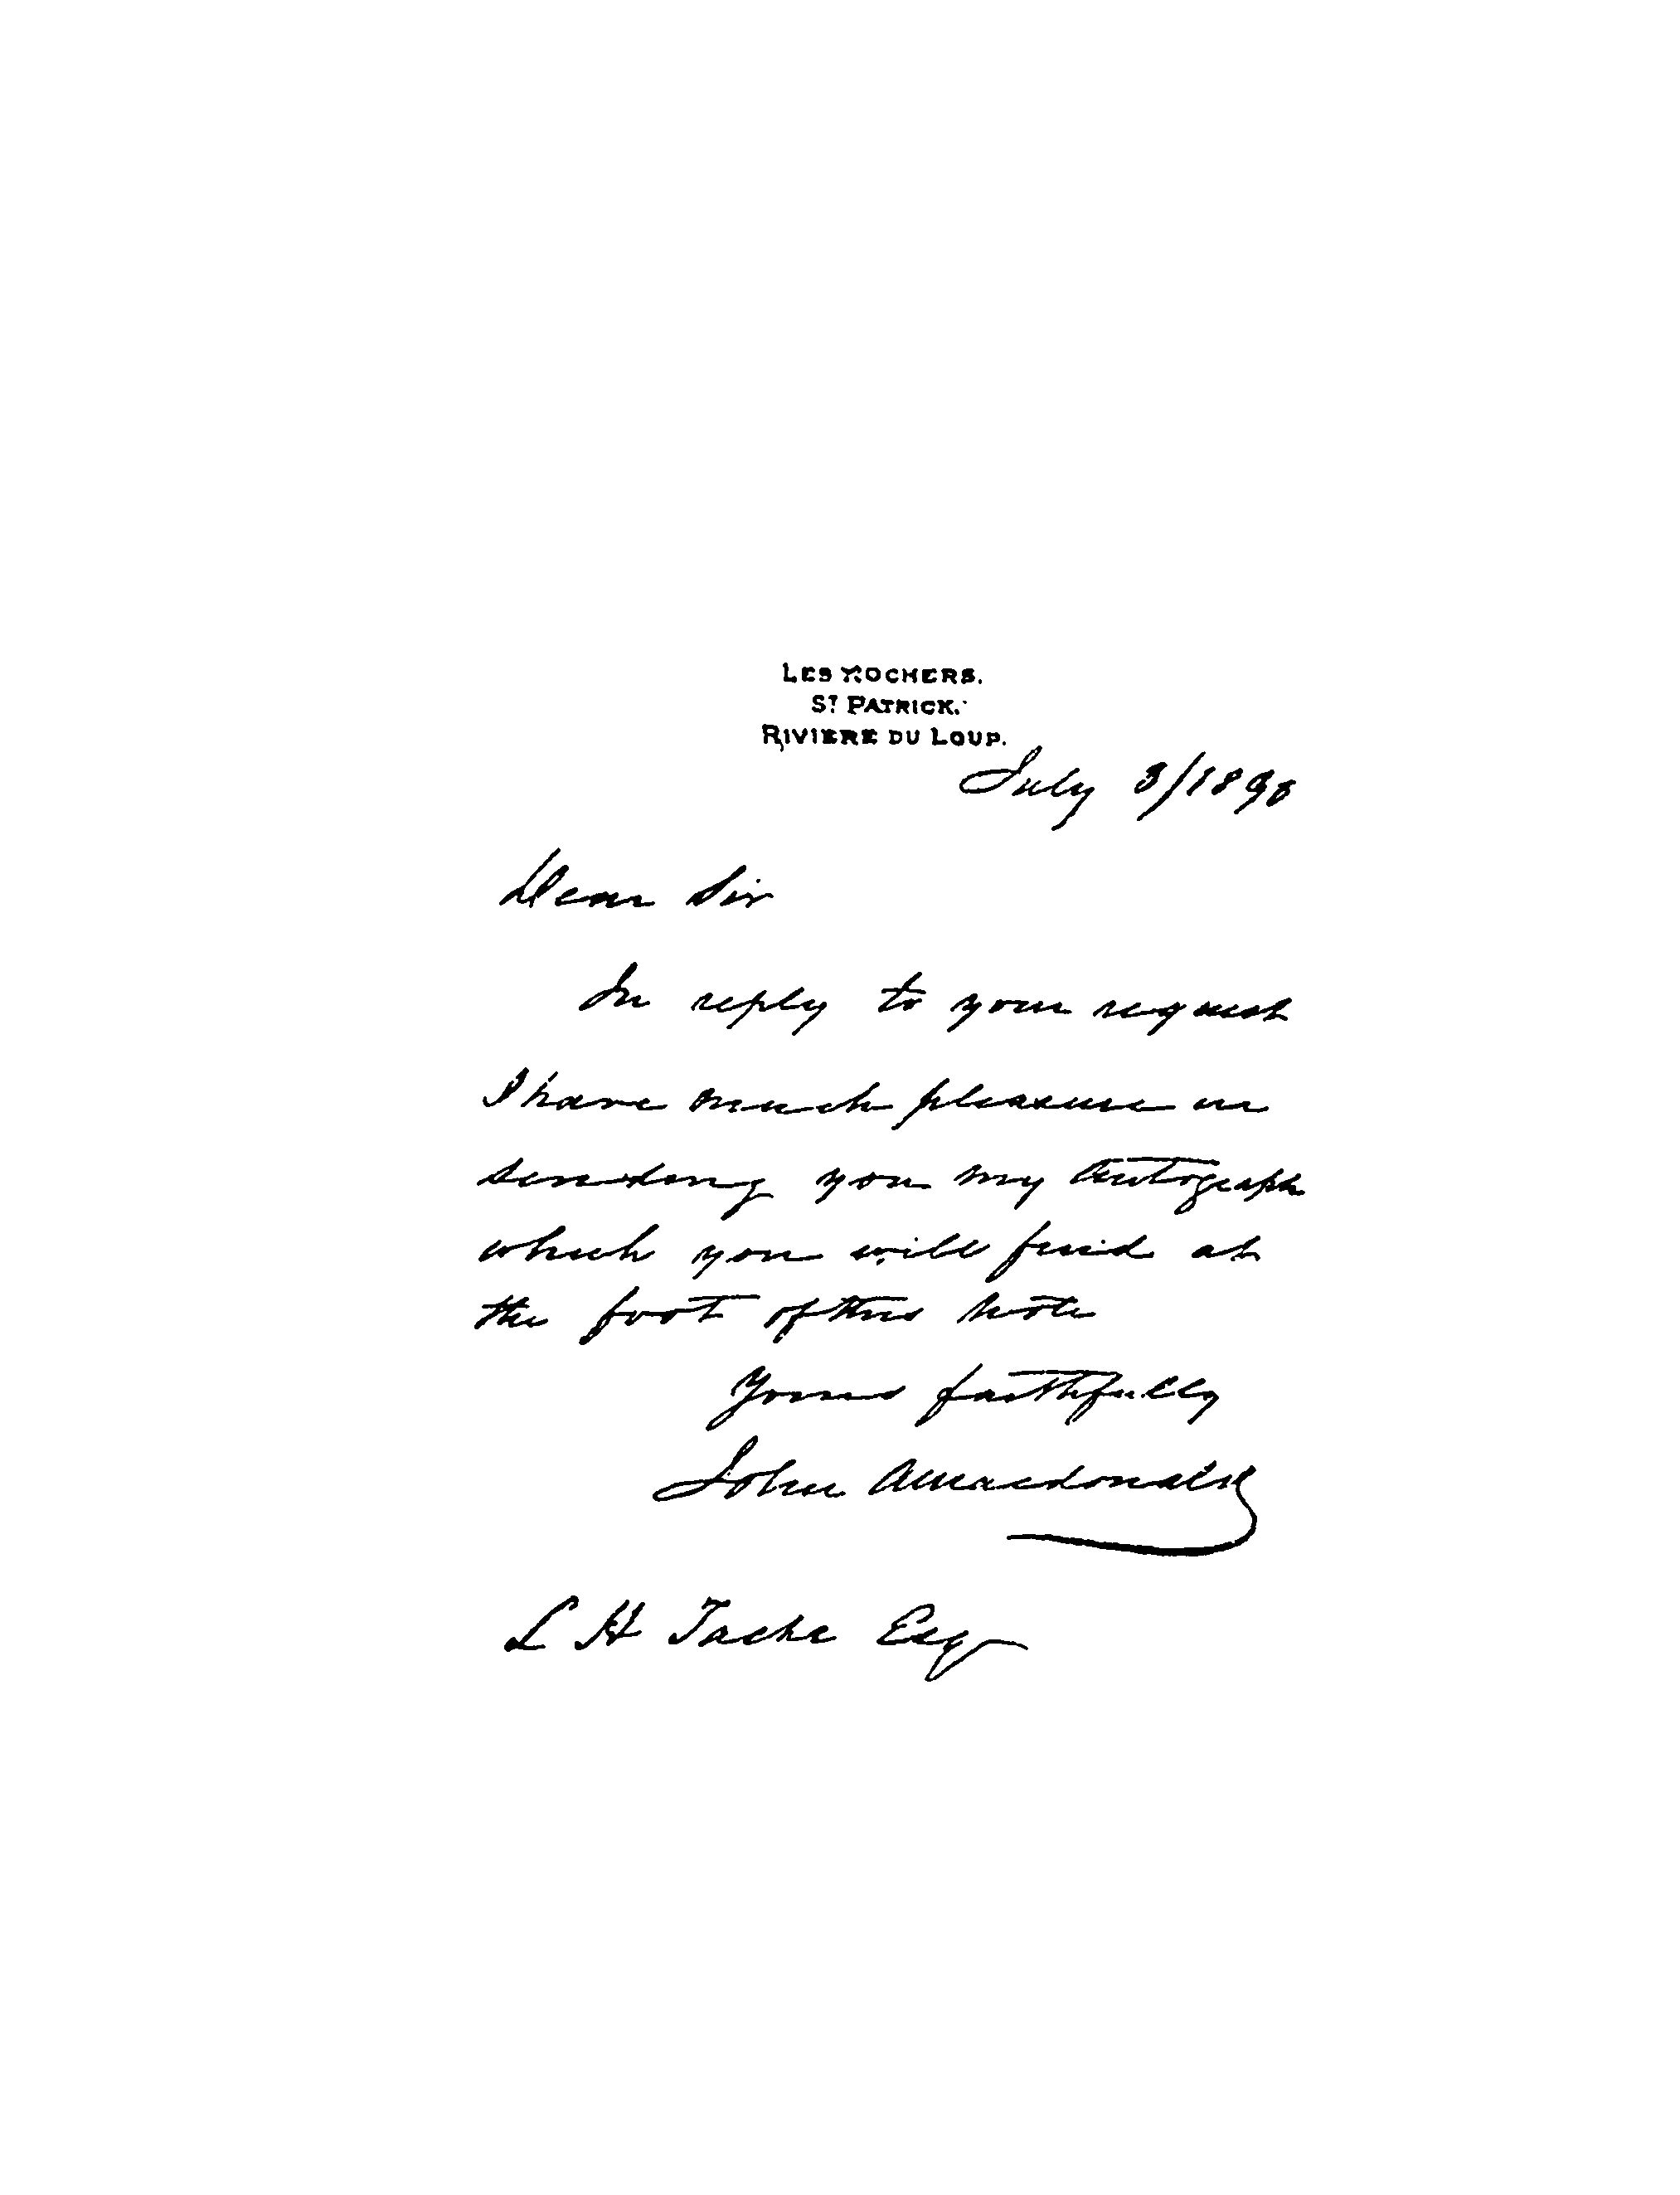 LES ROCHERS.
ST PATRICK.
RIVIERE DU LOUP.
July 3/1890
Dear Sir
In reply to your request
I have much pleasure in
sending you my Autograph
which you will find at
the foot of this note
Yours faithfully
John A Macdonald
L H Tache Esq